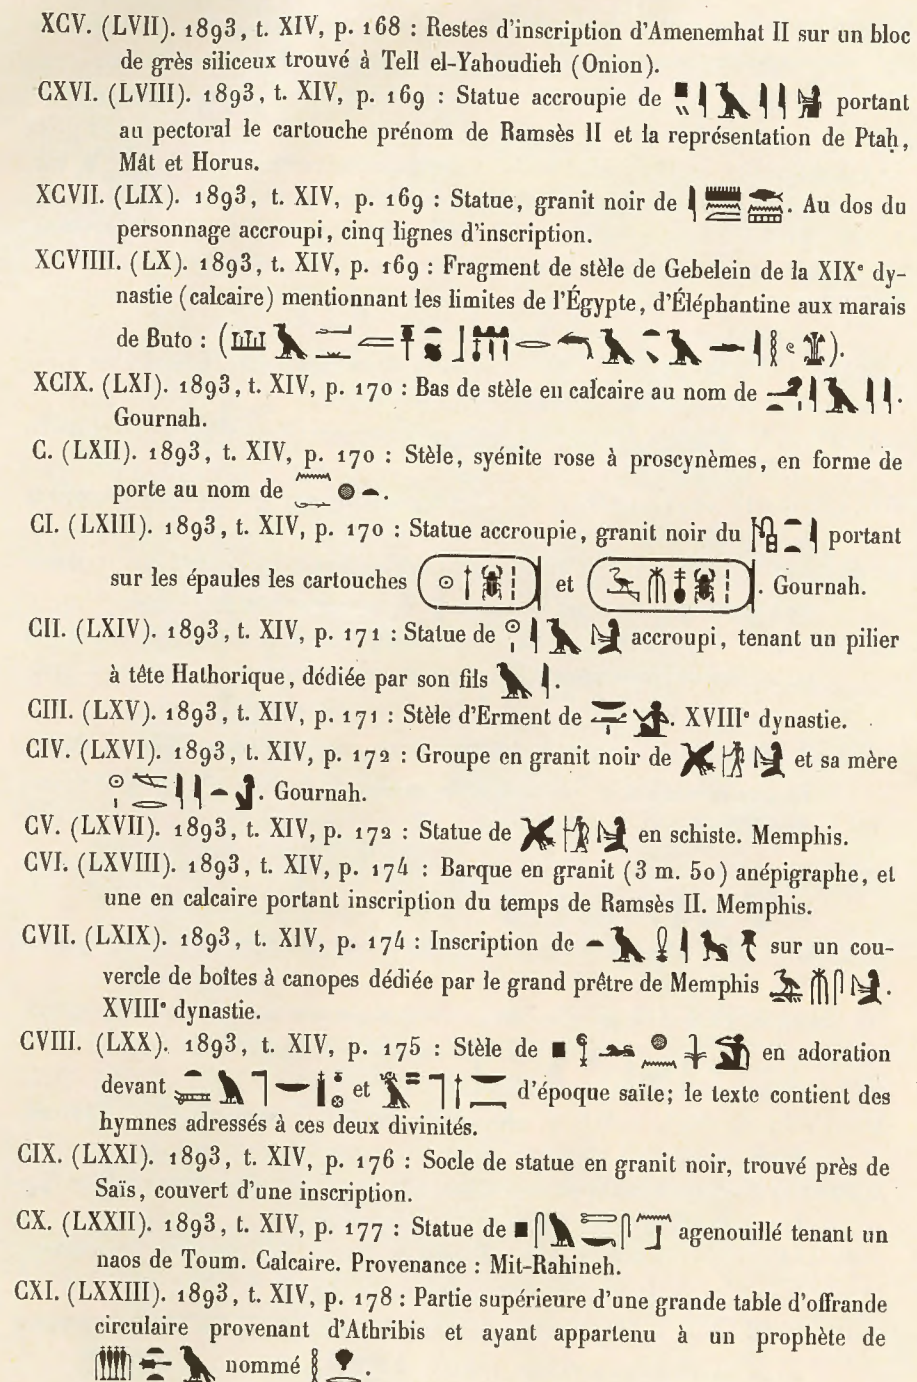 XCV. (LVII). 1893, t. XIV, p. 168 : Restes d'inscription d'Amenemhat II sur un bloc
de grès siliceux trouvé à Tell el-Yahoudieh (Onion).
CXVI. (LVIII). 1893, t. XIV, p. 169 : Statue accroupie de portant
au pectoral le cartouche prénom de Ramsès II et la représentation de Ptaḥ,
Mât et Horus.
XCVII. (LIX). 1893, t. XIV, p. 169 : Statue, granit noir de . Au dos du
personnage accroupi, cinq lignes d'inscription.
XCVIIII. (LX). 1893, t. XIV, p. 169 : Fragment de stèle de Gebelein de la XIXᵉ dy-
nastie (calcaire) mentionnant les limites de l'Égypte, d'Éléphantine aux marais
de Buto : ( ).
XCIX. (LXI). 1893, t. XIV, p. 170 : Bas de stèle en calcaire au nom de .
Gournah.
C. (LXII). 1893, t. XIV, p. 170 : Stèle, syénite rose à proscynèmes, en forme de
porte au nom de .
CI. (LXIII). 1893, t. XIV, p. 170 : Statue accroupie, granit noir du portant
sur les épaules les cartouches et . Gournah.
CII. (LXIV). 1893, t. XIV, p. 171 : Statue de accroupi, tenant un pilier
à tête Hathorique, dédiée par son fils .
CIII. (LXV). 1893, t. XIV, p. 171 : Stèle d'Erment de . XVIIIᵉ dynastie.
CIV. (LXVI). 1893, t. XIV, p. 172 : Groupe en granit noir de et sa mère
. Gournah.
CV. (LXVII). 1893, t. XIV, p. 172 : Statue de en schiste. Memphis.
CVI. (LXVIII). 1893, t. XIV, p. 174 : Barque en granit (3 m. 50) anépigraphe, et
une en calcaire portant inscription du temps de Ramsès II. Memphis.
CVII. (LXIX). 1893, t. XIV, p. 174 : Inscription de sur un cou-
vercle de boîtes à canopes dédiée par le grand prêtre de Memphis .
XVIIIᵉ dynastie.
CVIII. (LXX). 1893, t. XIV, p. 175 : Stèle de en adoration
devant et d'époque saïte; le texte contient des
hymnes adressés à ces deux divinités.
CIX. (LXXI). 1893, t. XIV, p. 176 : Socle de statue en granit noir, trouvé près de
Saïs, couvert d'une inscription.
CX. (LXXII). 1893, t. XIV, p. 177 : Statue de agenouillé tenant un
naos de Toum. Calcaire. Provenance : Mit-Rahineh.
CXI. (LXXIII). 1893, t. XIV, p. 178 : Partie supérieure d'une grande table d'offrande
circulaire provenant d'Athribis et ayant appartenu à un prophète de
nommé .